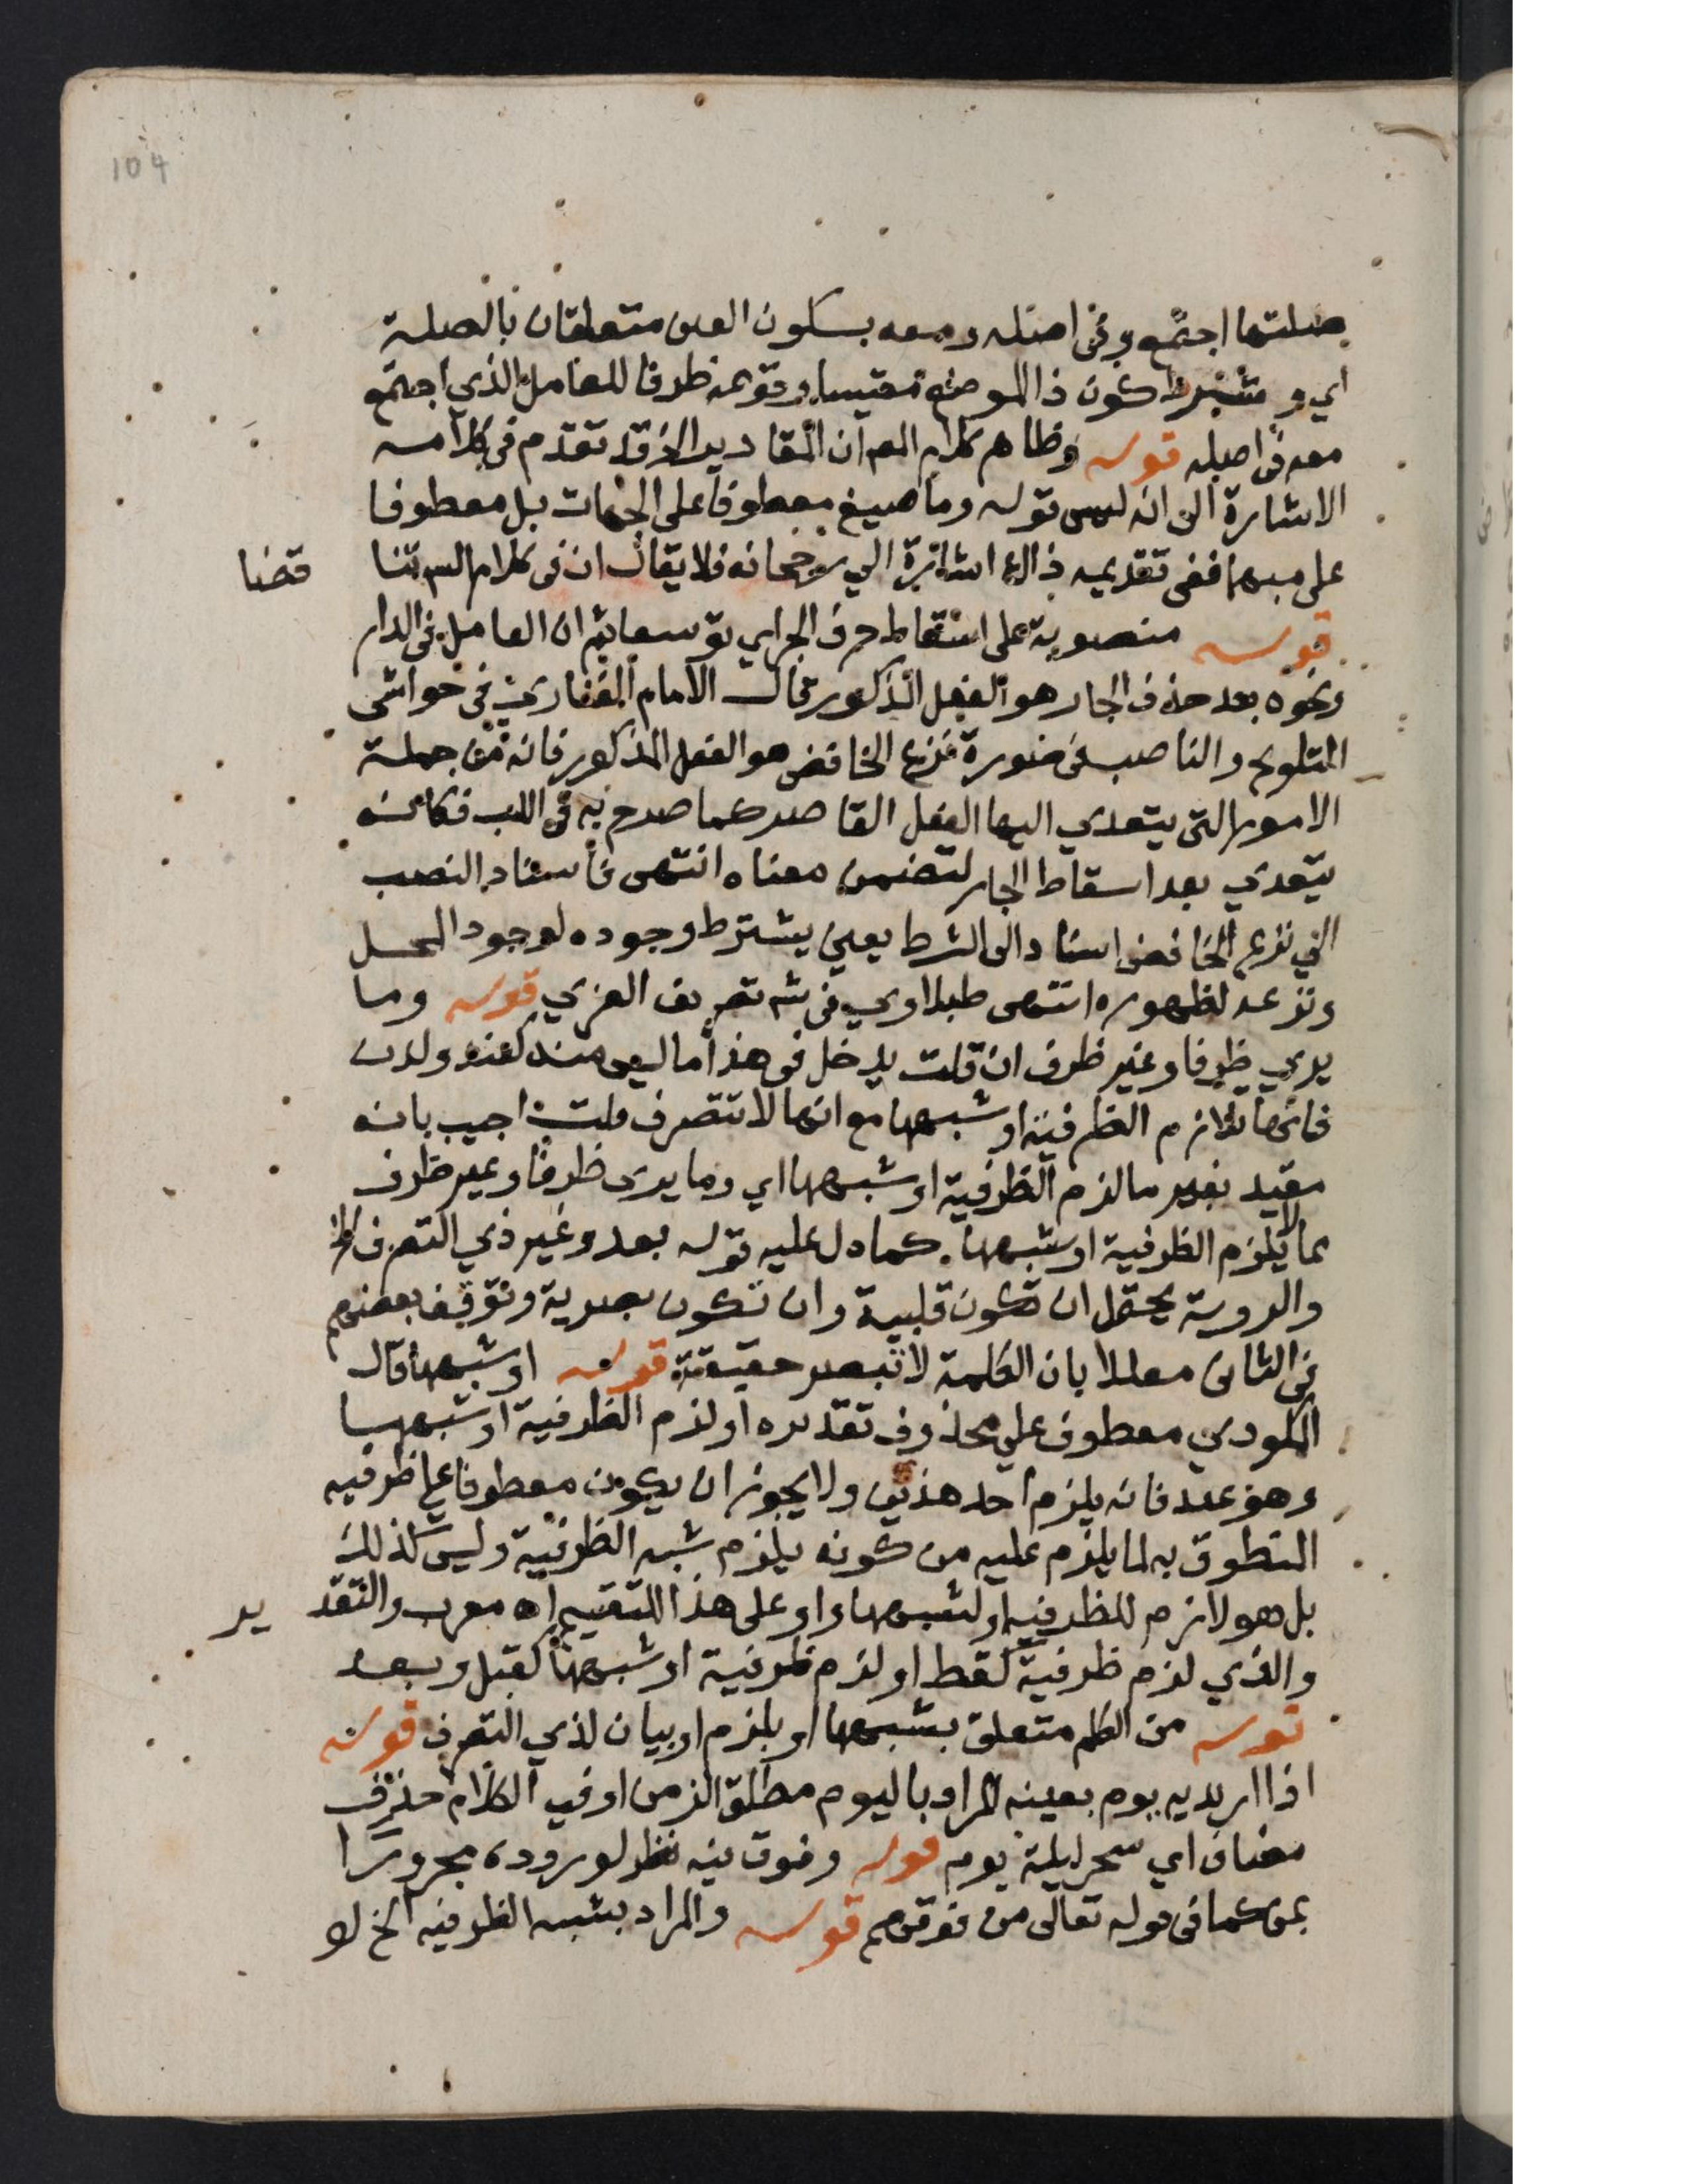 104
صلتها اجتمع وفى اصله ومعه بسكون العين متعلقان بالصلة
اي وشرط كون ذا الموضع مقيسا وقوعه ظرفا للعامل الذي اجتمع
معه فى اصله قوله وظاهر كلام المص ان المقادير الخ قد تقدم فى كلامه
الاشارة الى انه ليس قوله وما صيغ معطوفا على الجهات بل معطوفا
على مبهما ففى تقديمه ذالك اشارة الي رجحانه فلا يقال ان فى كلامه تناقضا
قوله منصوبة على اسقاط حرف الجر اي توسعا ثم ان العامل فى الدار
ونحوه بعد حذف الجار هو الفعل المذكور قال الامام الفنارى فى حواشى
التلويح والناصب فى صورة نزع الخافض هو الفعل المذكور فانه من جملة
الامور التى يتعدي اليها الفعل القاصر كما صرح به فى اللب فكانه
يتعدي بعد اسقاط الجار لتضمن معناه انتهى فاسناد النصب
الي نزع الخافض اسناد الى الشرط يعنى يشترط وجوده لوجود العمل
ونزعه لظهوره انتهى طبلاوي فى شه تصريف العزي قوله وما
يري ظرفا وغير ظرف ان قلت يدخل فى هذا ما ليس منه كعند ولدن
فانها تلازم الظرفية او شبهها مع انها لا تتصرف قلت اجيب بانه
مقيد بغير ما لزم الظرفية او شبهها اي وما يرى ظرفا وغير ظرف
مما لا يلزم الظرفية او شبهها كما دل عليه قوله بعد وغير ذي التصرف الخ
والروية يحتمل ان تكون قلبية وان تكون بصرية وتوقف بعضهم
فى الثانى معللا بان الكلمة لا تبصر حقيقة قوله او شبهها قال
المكودي معطوف علي محذوف تقديره او لزم الظرفية او شبهها
وهو عند فانه يلزم احد هذين ولا يجوز ان يكون معطوفا على ظرفيه
المنطوق به لما يلزم عليه من كونه يلزم شبه الظرفية وليس كذلك
بل هو لازم للظرفية او لشبهها واو على هذا للتقسيم اه معرب والتقدير
والذي لزم ظرفية كقط او لزم ظرفية او شبهها كقبل وبعد
قوله من الكلم متعلق بشبهها او بلزم او بيان لذي التصرف قوله
اذا اريد به يوم بعينه المراد باليوم مطلق الزمن او فى الكلام حذف
مضاف اي سحر ليلة يوم قوله وفوق فيه نظر لوروده مجرورا
بمن كما فى قوله تعالى من فوقهم قوله والمراد بشبه الظرفيه الخ لا